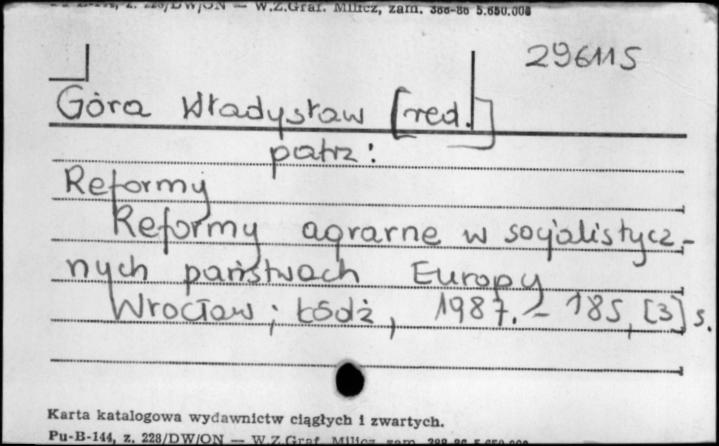 Pu-B-144, z. 228/DW/ON — W.Z.Graf. Milicz, zam. 388-86 5.650.000
296115
Góra Władysław [red.]
patrz:
Reformy
Reformy agrarne w socjalistycz-
nych państwach Europy
Wrocław; Łódź, 1987. – 185, [3] s.
Karta katalogowa wydawnictw ciągłych i zwartych.
Pu-B-144, z. 228/DW/ON — W.Z.Graf. Milicz, zam. 388-86 5.650.000